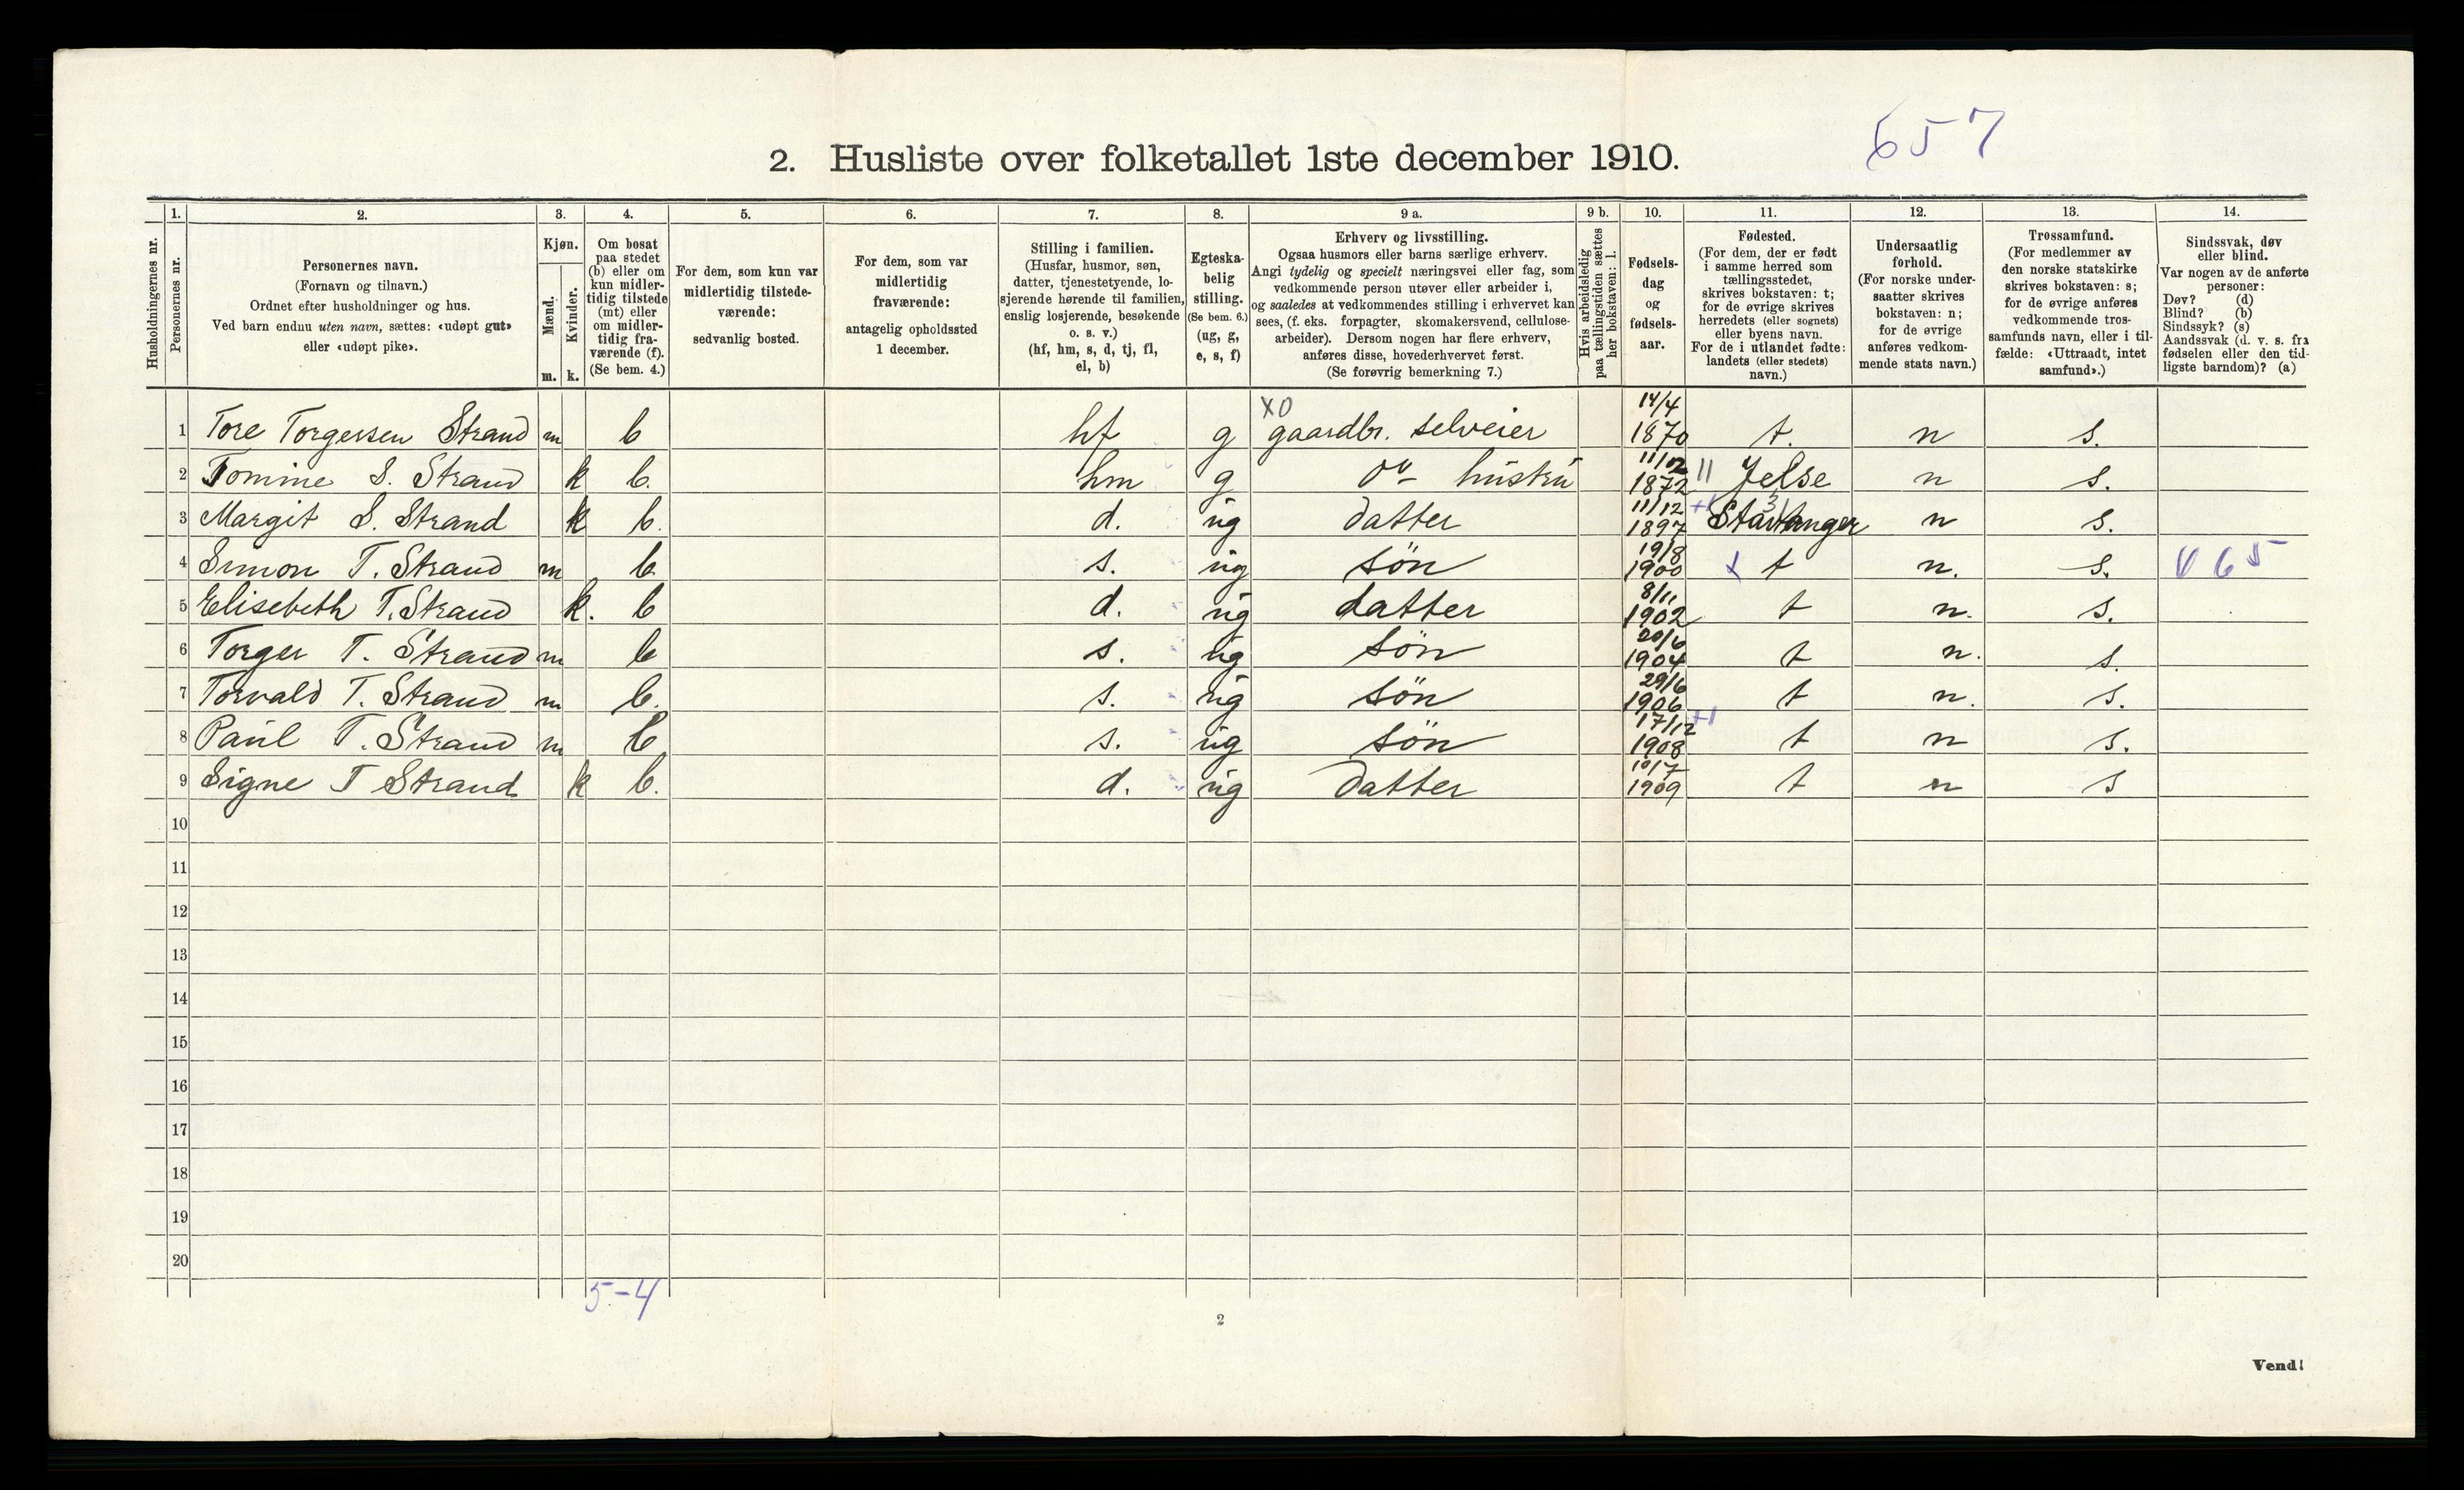 657
2. Husliste over folketallet 1ste december 1910.
1. 2. 3. 4. 5. 6. 7. 8. 9 a. 9 b. 10. 11. 12. 13. 14.
Husholdningernes nr.
Personernes nr.
Personernes navn.
(Fornavn og tilnavn.)
Ordnet efter husholdninger og hus.
Ved barn endnu uten navn, sættes: «udøpt gut»
eller «udøpt pike».
Kjøn.
Mænd.
Kvinder.
m. k.
Om bosat
paa stedet
(b) eller om
kun midler-
tidig tilstede
(mt) eller
om midler-
tidig fra-
værende (f).
(Se bem. 4.)
For dem, som kun var
midlertidig tilstede-
værende:
sedvanlig bosted.
For dem, som var
midlertidig
fraværende:
antagelig opholdssted
1 december.
Stilling i familien.
(Husfar, husmor, søn,
datter, tjenestetyende, lo-
sjerende hørende til familien,
enslig losjerende, besøkende
o. s. v.)
(hf, hm, s, d, tj, fl,
el, b)
Egteska-
belig
stilling.
(Se bem. 6.)
(ug, g,
e, s, f)
Erhverv og livsstilling.
Ogsaa husmors eller barns særlige erhverv.
Angi tydelig og specielt næringsvei eller fag, som
vedkommende person utøver eller arbeider i,
og saaledes at vedkommendes stilling i erhvervet kan
sees, (f. eks. forpagter, skomakersvend, cellulose-
arbeider). Dersom nogen har flere erhverv,
anføres disse, hovederhvervet først.
(Se forøvrig bemerkning 7.)
Hvis arbeidsledig
paa tællingstiden sættes
her bokstaven: l.
Fødsels-
dag
og
fødsels-
aar.
Fødested.
(For dem, der er født
i samme herred som
tællingsstedet,
skrives bokstaven: t;
for de øvrige skrives
herredets (eller sognets)
eller byens navn.
For de i utlandet fødte:
landets (eller stedets)
navn.)
Undersaatlig
forhold.
(For norske under-
saatter skrives
bokstaven: n;
for de øvrige
anføres vedkom-
mende stats navn.)
Trossamfund.
(For medlemmer av
den norske statskirke
skrives bokstaven: s;
for de øvrige anføres
vedkommende tros-
samfunds navn, eller i til-
fælde: «Uttraadt, intet
samfund».)
Sindssvak, døv
eller blind.
Var nogen av de anførte
personer:
Døv? (d)
Blind? (b)
Sindssyk? (s)
Aandssvak (d. v. s. fra
fødselen eller den tid-
ligste barndom)? (a)
1 Tore Torgersen Strand m b hf g X0 gaardbr. selveier 14/4 1870 t. n s.
2 Tomine S. Strand k b. hm g do hustru 11/12 1872 11 Jelse n s.
3 Margit S. Strand k b. d. ug datter 11/12 1897 +1 Stavanger n s.
4 Simon T. Strand m b. s. ug søn 19/8 1900 x t n. s. 065
5 Elisebeth T. Strand k. b d. ug datter 8/11 1902 t n. s.
6 Torger T. Strand m b s. ug søn 20/6 1904 t n. s.
7 Torvald T. Strand m b. s. ug søn 29/6 1906 t n. s.
8 Paul T. Strand m b s. ug søn 17/12 1908 +1 t n s.
9 Signe T Strand k b. d. ug datter 10/7 1909 t n s
10
11
12
13
14
15
16
17
18
19
20
5-4
2
Vend!